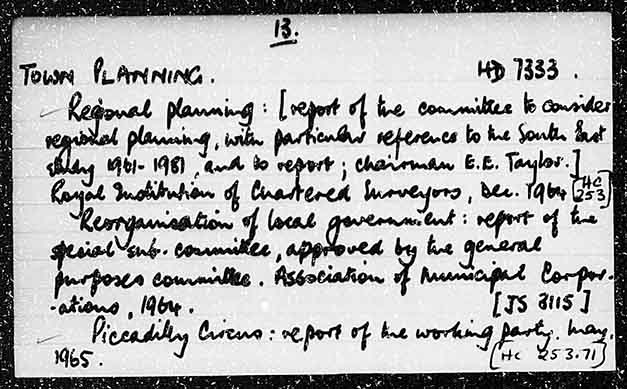 13.
TOWN PLANNING. HD 7333.
Regional planning: [report of the committee to consider
regional planning, with particular reference to the South East
study 1961-1981, and to report; chairman E.E. Taylor.]
Royal Institution of Chartered Surveyors, Dec. 1964 [HC 253]
Reorganisation of local government: report of the
special sub-committee, approved by the general
purposes committee. Association of Municipal Corpor-
-ations, 1964. [JS 3115]
Piccadilly Circus: report of the working party. May,
1965. [HC 253.71]